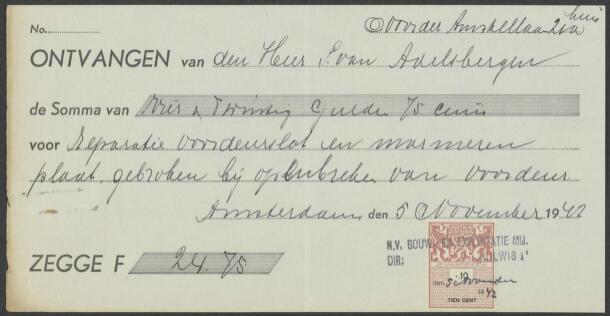 No. Noorder Amstellaan 210a
huis
ONTVANGEN van den Heer S. van Adelsbergen
de Somma van Vier & Twintig Gulden 75 cents
voor Reparatie voordeurslot en marmeren
plaat, gebroken bij openbreken van voordeur
Amsterdam, den 5 November 1942
N.V. BOUW- EN EXPLOITATIE MIJ.
DIR:
ZEGGE F 24.75
-10
den 5 November
19 42
TIEN CENT